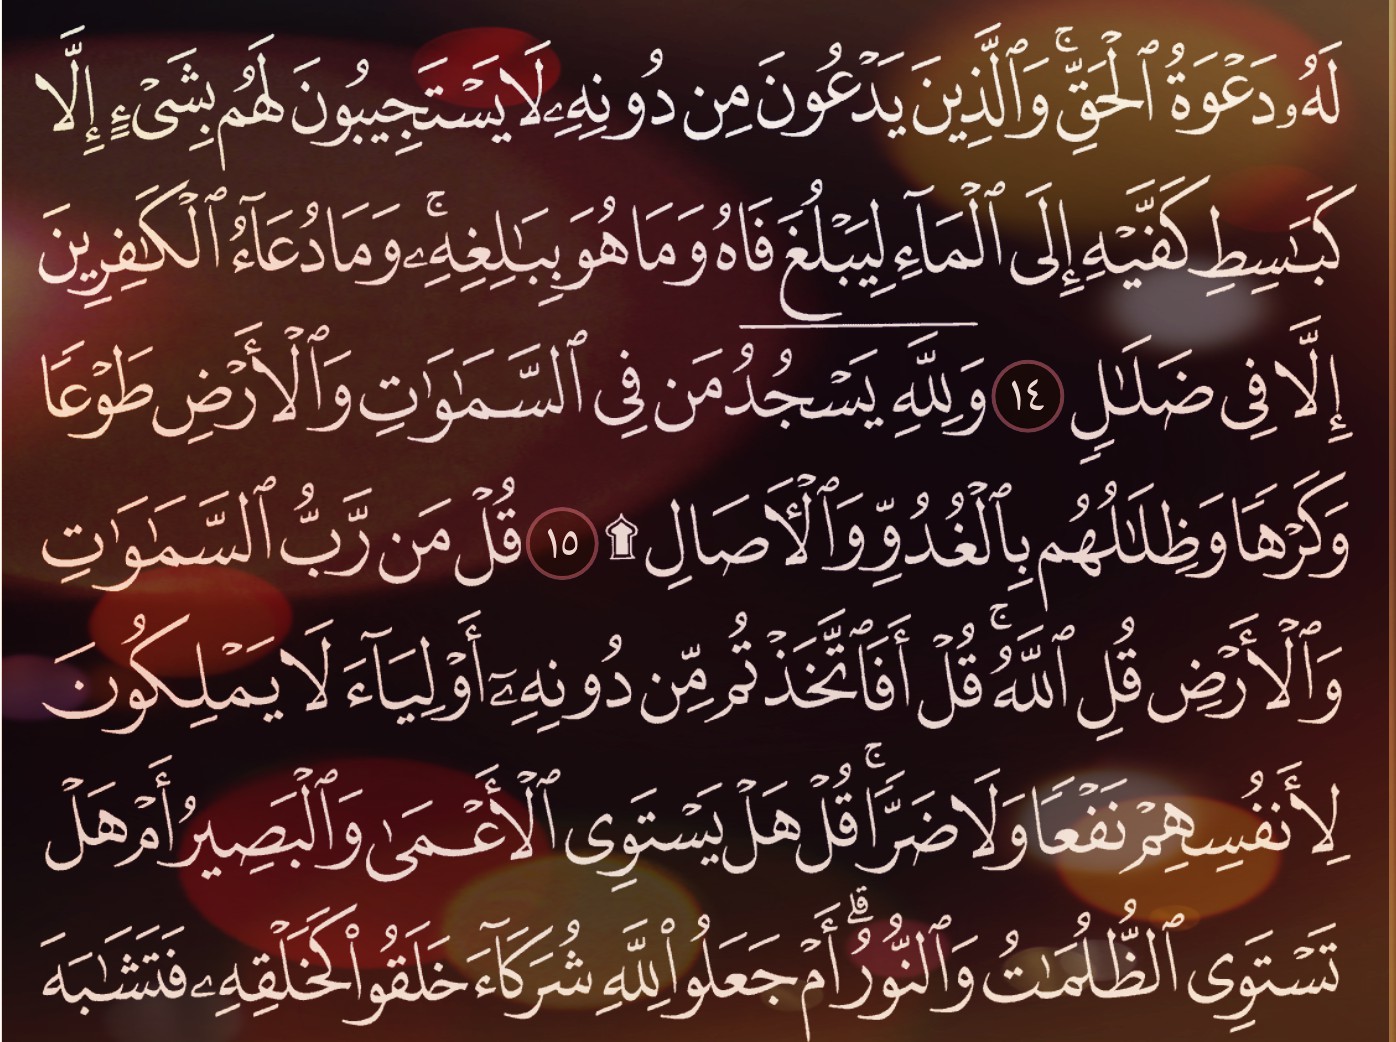 لَهُۥ دَعْوَةُ ٱلْحَقِّ ۚ وَٱلَّذِينَ يَدْعُونَ مِن دُونِهِۦ لَا يَسْتَجِيبُونَ لَهُم بِشَىْءٍ إِلَّا
كَبَـٰسِطِ كَفَّيْهِ إِلَى ٱلْمَآءِ لِيَبْلُغَ فَاهُ وَمَا هُوَ بِبَـٰلِغِهِۦ ۚ وَمَا دُعَآءُ ٱلْكَـٰفِرِينَ
إِلَّا فِى ضَلَـٰلٍ ١٤ وَلِلَّهِ يَسْجُدُ مَن فِى ٱلسَّمَـٰوَٰتِ وَٱلْأَرْضِ طَوْعًا
وَكَرْهًا وَظِلَـٰلُهُم بِٱلْغُدُوِّ وَٱلْـَٔاصَالِ ۩ ١٥ قُلْ مَن رَّبُّ ٱلسَّمَـٰوَٰتِ
وَٱلْأَرْضِ قُلِ ٱللَّهُ ۚ قُلْ أَفَٱتَّخَذْتُم مِّن دُونِهِۦٓ أَوْلِيَآءَ لَا يَمْلِكُونَ
لِأَنفُسِهِمْ نَفْعًا وَلَا ضَرًّا ۚ قُلْ هَلْ يَسْتَوِى ٱلْأَعْمَىٰ وَٱلْبَصِيرُ أَمْ هَلْ
تَسْتَوِى ٱلظُّلُمَـٰتُ وَٱلنُّورُ ۗ أَمْ جَعَلُوا۟ لِلَّهِ شُرَكَآءَ خَلَقُوا۟ كَخَلْقِهِۦ فَتَشَـٰبَهَ